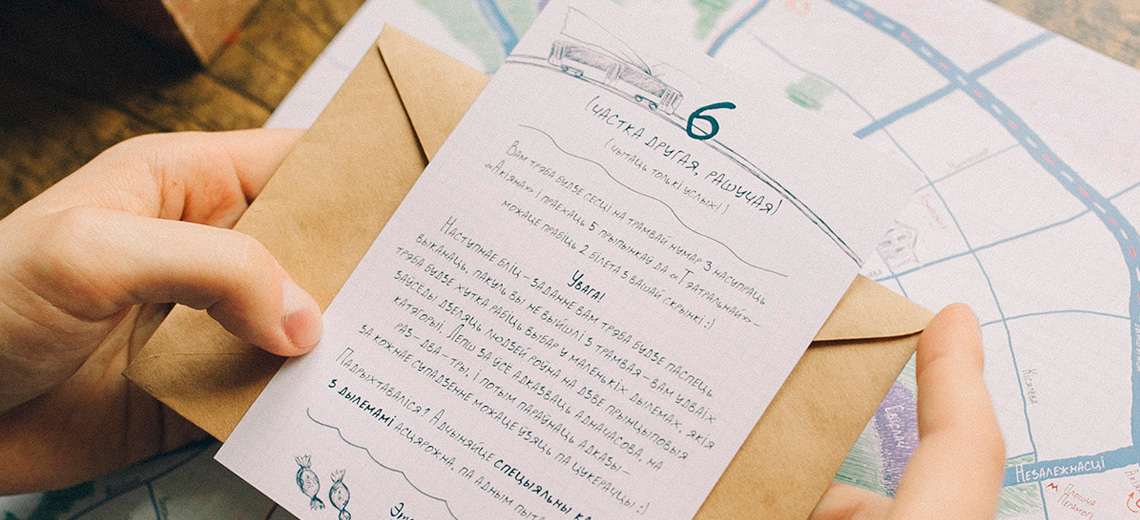 6
(ЧАСТКА ДРУГАЯ, РАШУЧАЯ)
(ЧЫТАЦЬ ТОЛЬКІ ЎСЛЫХ!)
ВАМ ТРЭБА БУДЗЕ СЕСЦІ НА ТРАМВАЙ НУМАР 3 НАСУПРАЦЬ
«АКІЯНА» І ПРАЕХАЦЬ 5 ПРЫПЫНКАЎ ДА «ТЭАТРАЛЬНАЙ» –
МОЖАЦЕ ПРАБІЦЬ 2 БІЛЕТА З ВАШАЙ СКРЫНКІ :)
УВАГА!
НАСТУПНАЕ БЛІЦ – ЗАДАННЕ ВАМ ТРЭБА БУДЗЕ ПАСПЕЦЬ
ВЫКАНАЦЬ, ПАКУЛЬ ВЫ НЕ ВЫЙШЛІ З ТРАМВАЯ – ВАМ УДВАІХ
ТРЭБА БУДЗЕ ХУТКА РАБІЦЬ ВЫБАР У МАЛЕНЬКІХ ДЫЛЕМАХ, ЯКІЯ
ЗАЎСЁДЫ ДЗЕЛЯЦЬ ЛЮДЗЕЙ РОЎНА НА ДЗВЕ ПРЫНЦЫПОВЫЯ
КАТЭГОРЫІ. ЛЕПШ ЗА ЎСЁ АДКАЗВАЦЬ АДНАЧАСОВА, НА
РАЗ – ДВА – ТРЫ, І ПОТЫМ ПАРАЎНАЦЬ АДКАЗЫ –
ЗА КОЖНАЕ СУПАДЗЕННЕ МОЖАЦЕ ЎЗЯЦЬ ПА ЦУКЕРАЧЦЫ! :)
ПАДРЫХТАВАЛІСЯ? АДЧЫНЯЙЦЕ СПЕЦЫЯЛЬНЫ
З ДЫЛЕМАМІ АСЦЯРОЖНА, ПА АДНЫМ
НЕЗАЛЕЖНАСЦІ
КІСЯЛЁВА
ПЛОШЧА
ПЕРАМОГІ